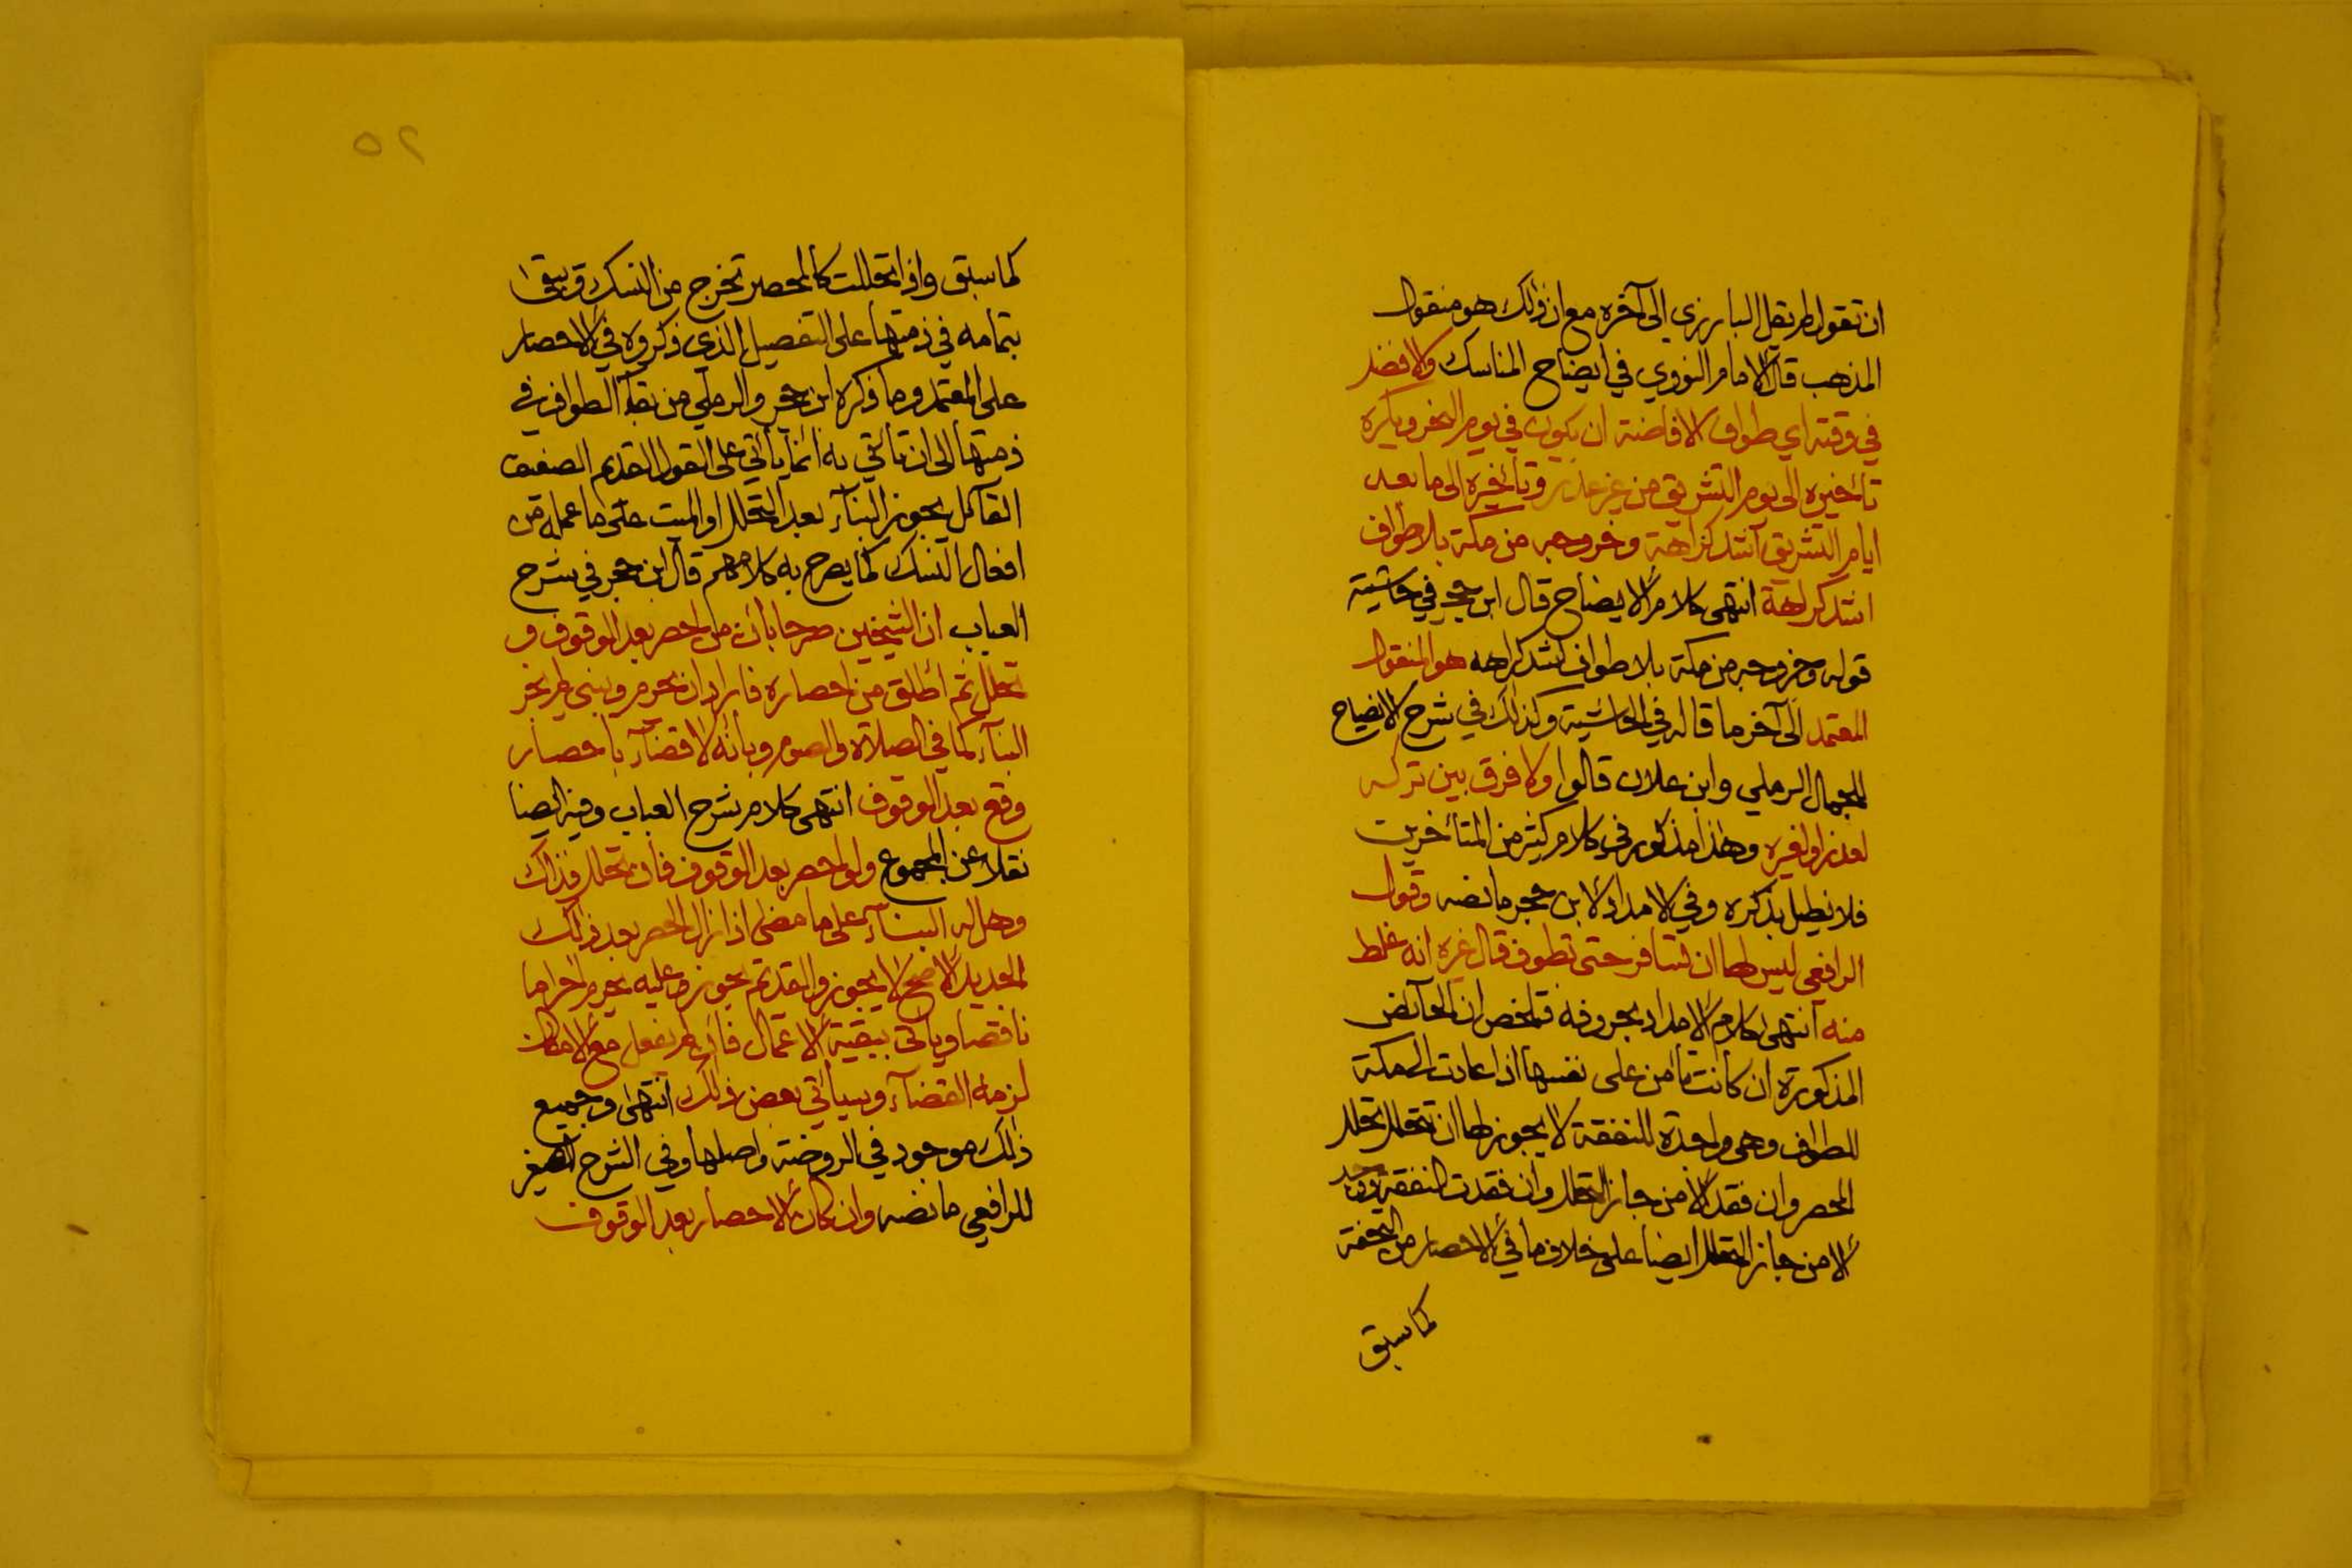 ان تقول لم نقل البارزي الى آخره مع ان ذلك هو منقول
المذهب قال الامام النووي في ايضاح المناسك والافضل
في وقته اي طواف الافاضة ان يكون في يوم النحر ويكره
تأخيره الى يوم التشريق من غير عذر وتأخيره الى ما بعد
ايام التشريق اشد كراهة وخروجه من مكة بلا طواف
اشد كراهة انتهى كلام الايضاح قال ابن حجر في حاشيته
قوله وخروجه من مكة بلا طواف اشد كراهه هو المنقول
المعتمد الى آخر ما قاله في الحاشية وكذلك في شرح الايضاح
للجمال الرملي وابن علان قالوا ولا فرق بين تركه
لعذر او لغيره وهذا مذكور في كلام كثير من المتأخرين
فلا نطيل بذكره وفي الامداد لابن حجر ما نصه وقول
الرافعي ليس لها ان تسافر حتى تطوف قال غيره انه غلط
منه انتهى كلام الامداد بحروفه فتلخص ان الحآئض
المذكورة ان كانت تأمن على نفسها اذا عادت الى مكة
للطواف وهي واجدة للنفقة لا يجوز لها ان تتحلل تحلل
المحصر وان فقد الامن جاز التحلل وان فقدت النفقة ووجد
الامن جاز التحلل ايضا على خلاف ما في الاحصار من التحفة
كما سبق
٥٢
كما سبق واذا تحللت كالمحصر تخرج من النسك ويبقى
بتمامه في ذمتها على التفصيل الذي ذكروه في الاحصار
على المعتمد وما ذكره ابن حجر والرملي من بقآء الطواف في
ذمتها الى ان تأتي به انما يأتي على القول القديم الضعيف
القآئل بجوز البنآء بعد التحلل او الميت على ما عمله من
افعال النسك كما يصرح به كلامهم قال ابن حجر في شرح
العباب ان الشيخين صرحا بأن من احصر بعد الوقوف و
تحلل ثم اطلق من احصاره فاراد ان يحرم ويبني لم يجز
البنآء كما في الصلاة والصوم وبأنه لا قضآء باحصار
وقع بعد الوقوف انتهى كلام شرح العباب وفيه ايضا
نقلا عن المجموع ولو احصر بعد الوقوف فان تحلل فذاك
وهل له البنآء على ما مضى اذا زال الحصر بعد ذلك
الجديد الاصح لا يجوز والقديم يجوز وعليه يحرم احراما
ناقصا ويأتي ببقية الاعمال فان لم يفعل مع الامكان
لزمه القضآء وسيأتي بعض ذلك انتهى وجميع
ذلك موجود في الروضة واصلها وفي الشرح الصغير
للرافعي ما نصه وان كان الاحصار بعد الوقوف